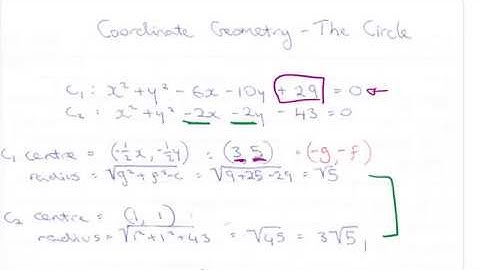 Coordinate Geometry - The Circle
C₁ : x² + y² - 6x - 10y + 29 = 0
C₂ : x² + y² - 2x - 2y - 43 = 0
C₁ centre = (-½x, -½y) : (3, 5) = (-g, -f)
radius = √g² + f² - c = √9 + 25 - 29 = √5
C₂ centre = (1, 1)
radius = √1² + 1² + 43 = √45 = 3√5,